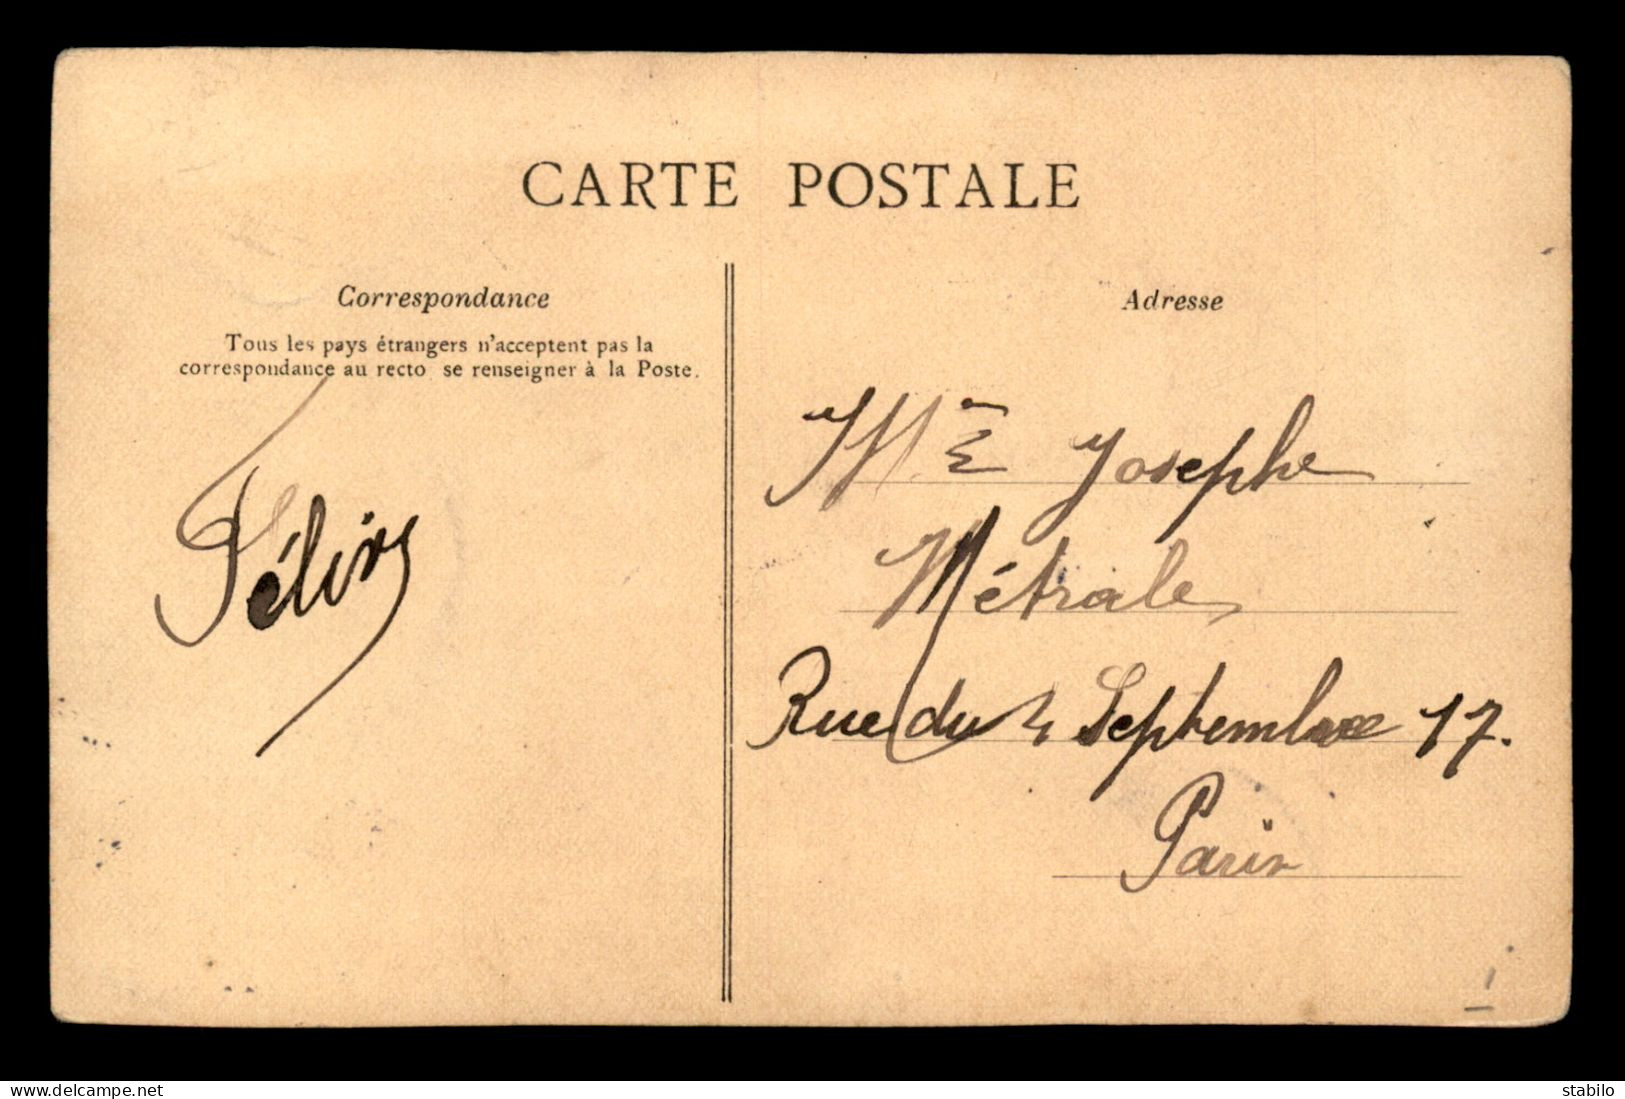 CARTE POSTALE
Correspondance
Tous les pays étrangers n'acceptent pas la
correspondance au recto se renseigner à la Poste.
Adresse
Mᵉ Josephe
Métrale
Rue du 4 Septembre 17.
Paris
1
delcampe.net
stabilo